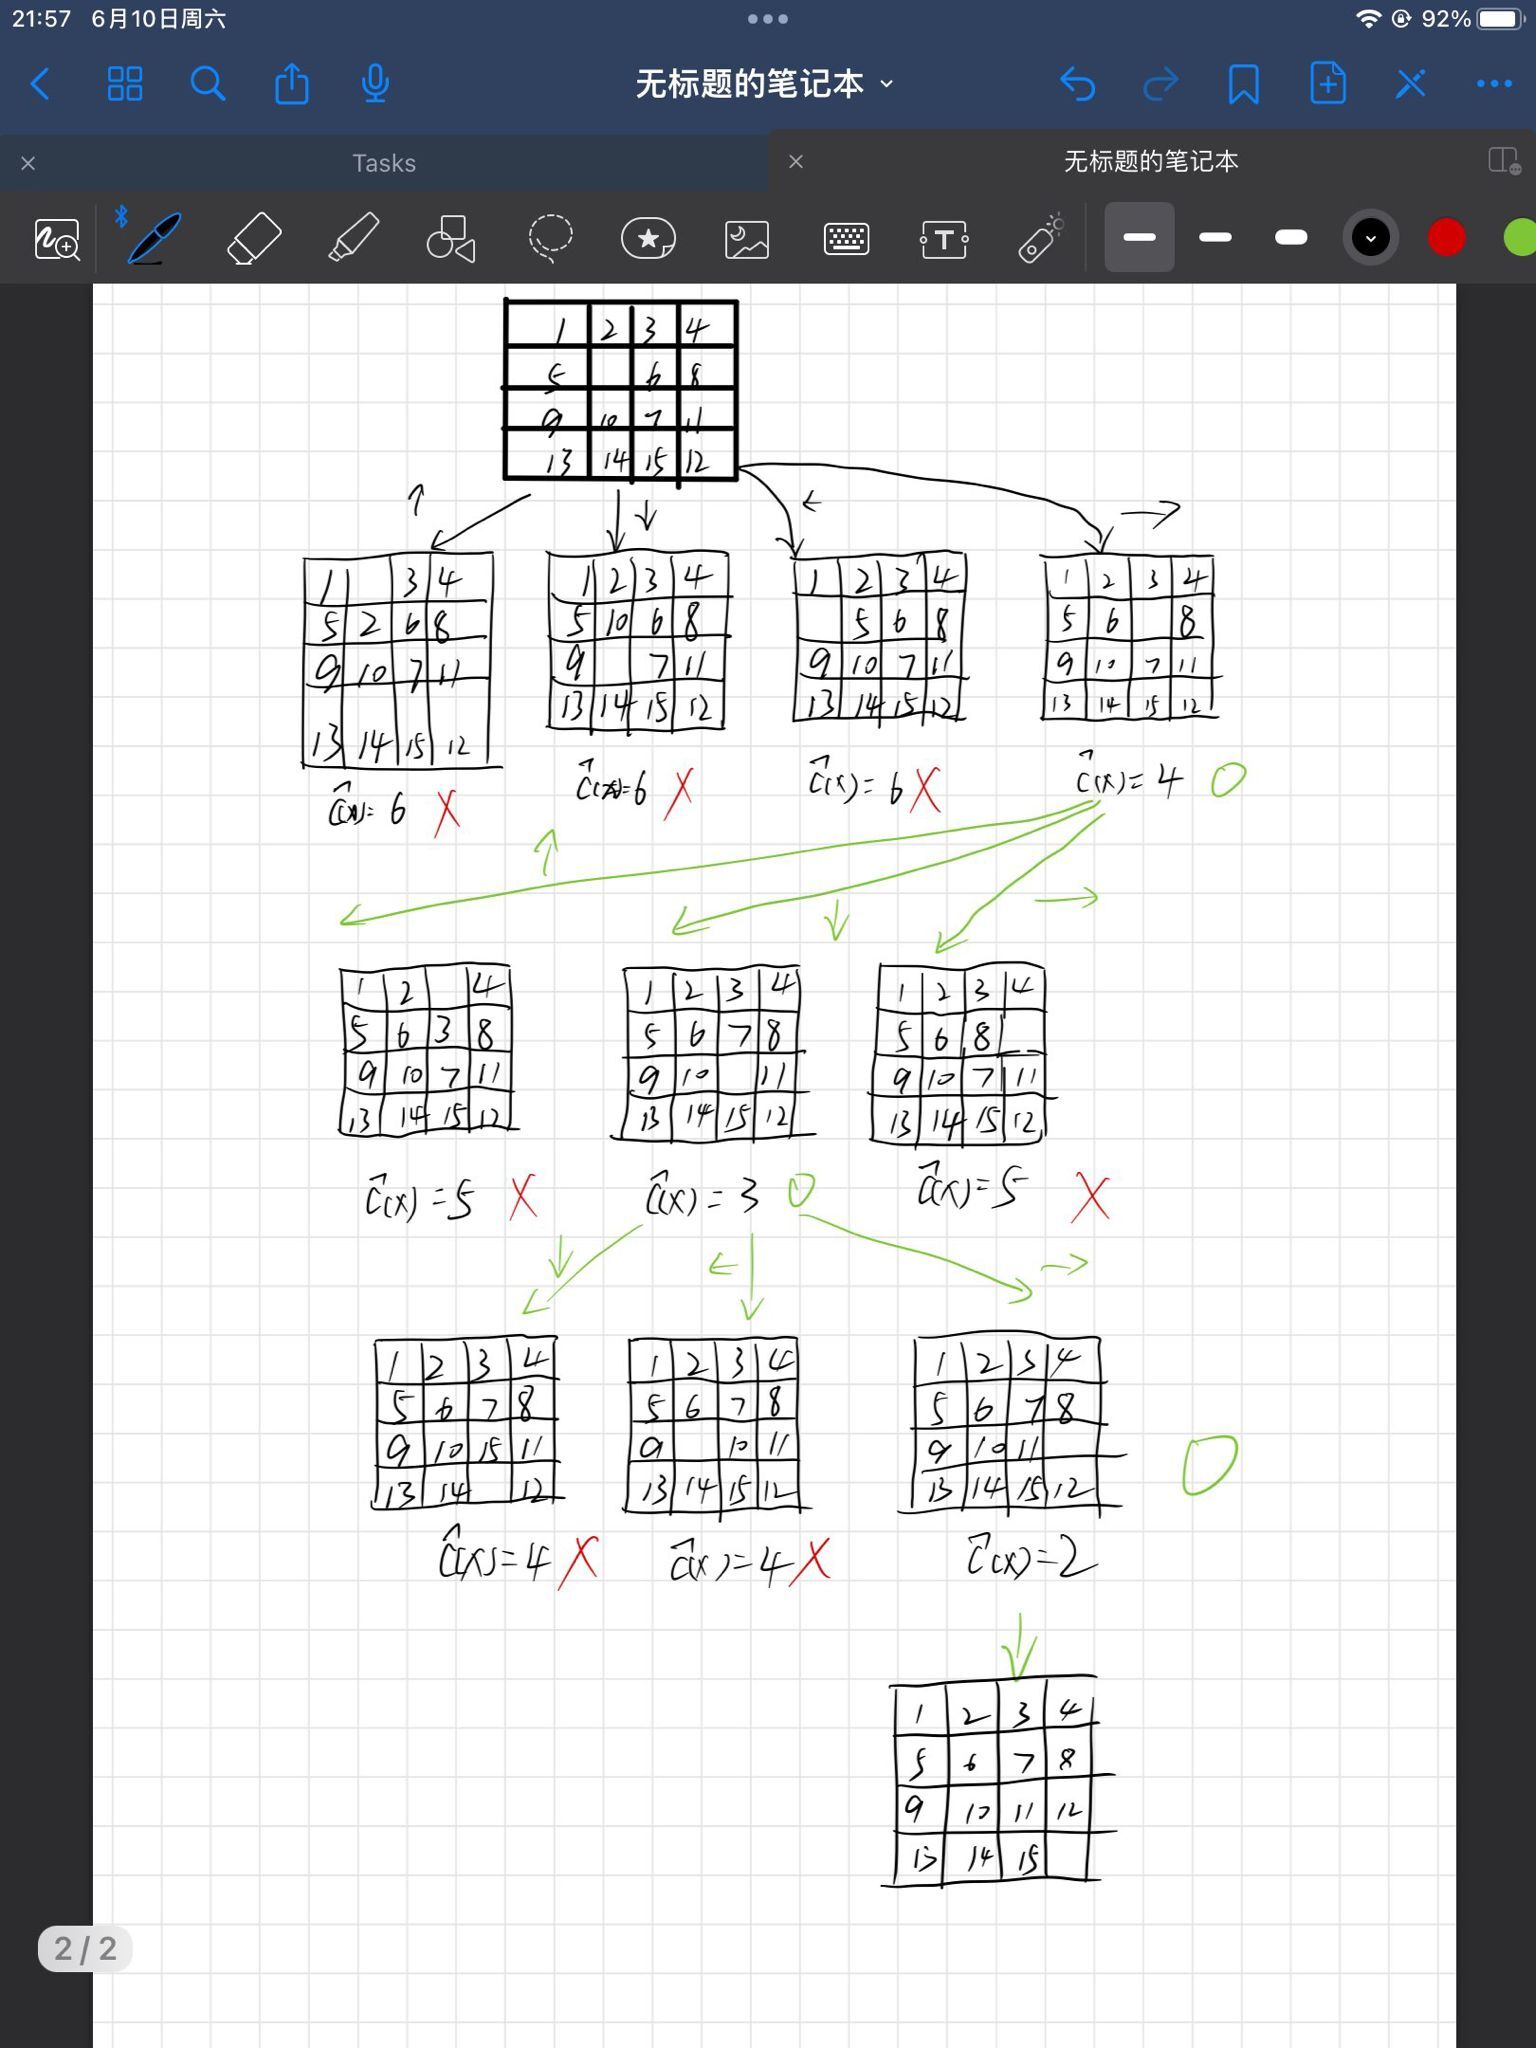 21:57 6月10日周六
92%
无标题的笔记本
Tasks
无标题的笔记本
T
1 2 3 4
5 6 8
9 10 7 11
13 14 15 12
↑ ↓ ← →
1 3 4
5 2 6 8
9 10 7 11
13 14 15 12
ĉ(x)=6 X
1 2 3 4
5 10 6 8
9 7 11
13 14 15 12
ĉ(x)=6 X
1 2 3 4
5 6 8
9 10 7 11
13 14 15 12
ĉ(x)=6 X
1 2 3 4
5 6 8
9 10 7 11
13 14 15 12
ĉ(x)=4 O
↑ ↓ →
1 2 4
5 6 3 8
9 10 7 11
13 14 15 12
ĉ(x)=5 X
1 2 3 4
5 6 7 8
9 10 11
13 14 15 12
ĉ(x)=3 O
1 2 3 4
5 6 8
9 10 7 11
13 14 15 12
ĉ(x)=5 X
↓ ← →
1 2 3 4
5 6 7 8
9 10 15 11
13 14 12
ĉ(x)=4 X
1 2 3 4
5 6 7 8
9 10 11
13 14 15 12
ĉ(x)=4 X
1 2 3 4
5 6 7 8
9 10 11
13 14 15 12
ĉ(x)=2
O
1 2 3 4
5 6 7 8
9 10 11 12
13 14 15
2/2